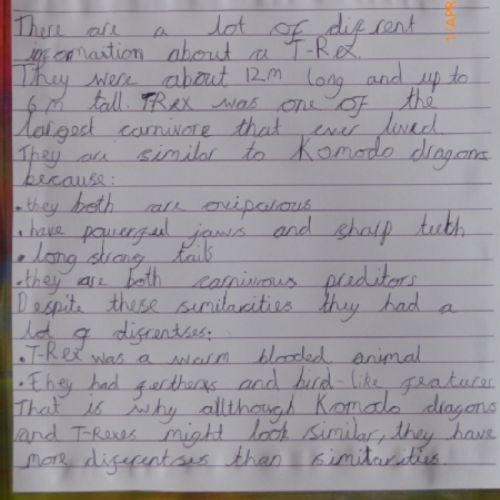 There are a lot of difrent
informartion about a T-Rex.
They were about 12m long and up to
6m tall. TRex was one of the
largest carnivore that ever lived.
They are similar to Komodo dragons
because:
• they both are oviparous
• have powerful jaws and sharp teeth
• long strong tails
• they are both carnivous preditors
Despite these similarities they had a
lot of difrentses:
• T-Rex was a warm blooded animal
• They had fertherxs and bird-like features
That is why allthough Komodo dragons
and T-Rexes might look similar, they have
more diferentses than similarities.
1/APR